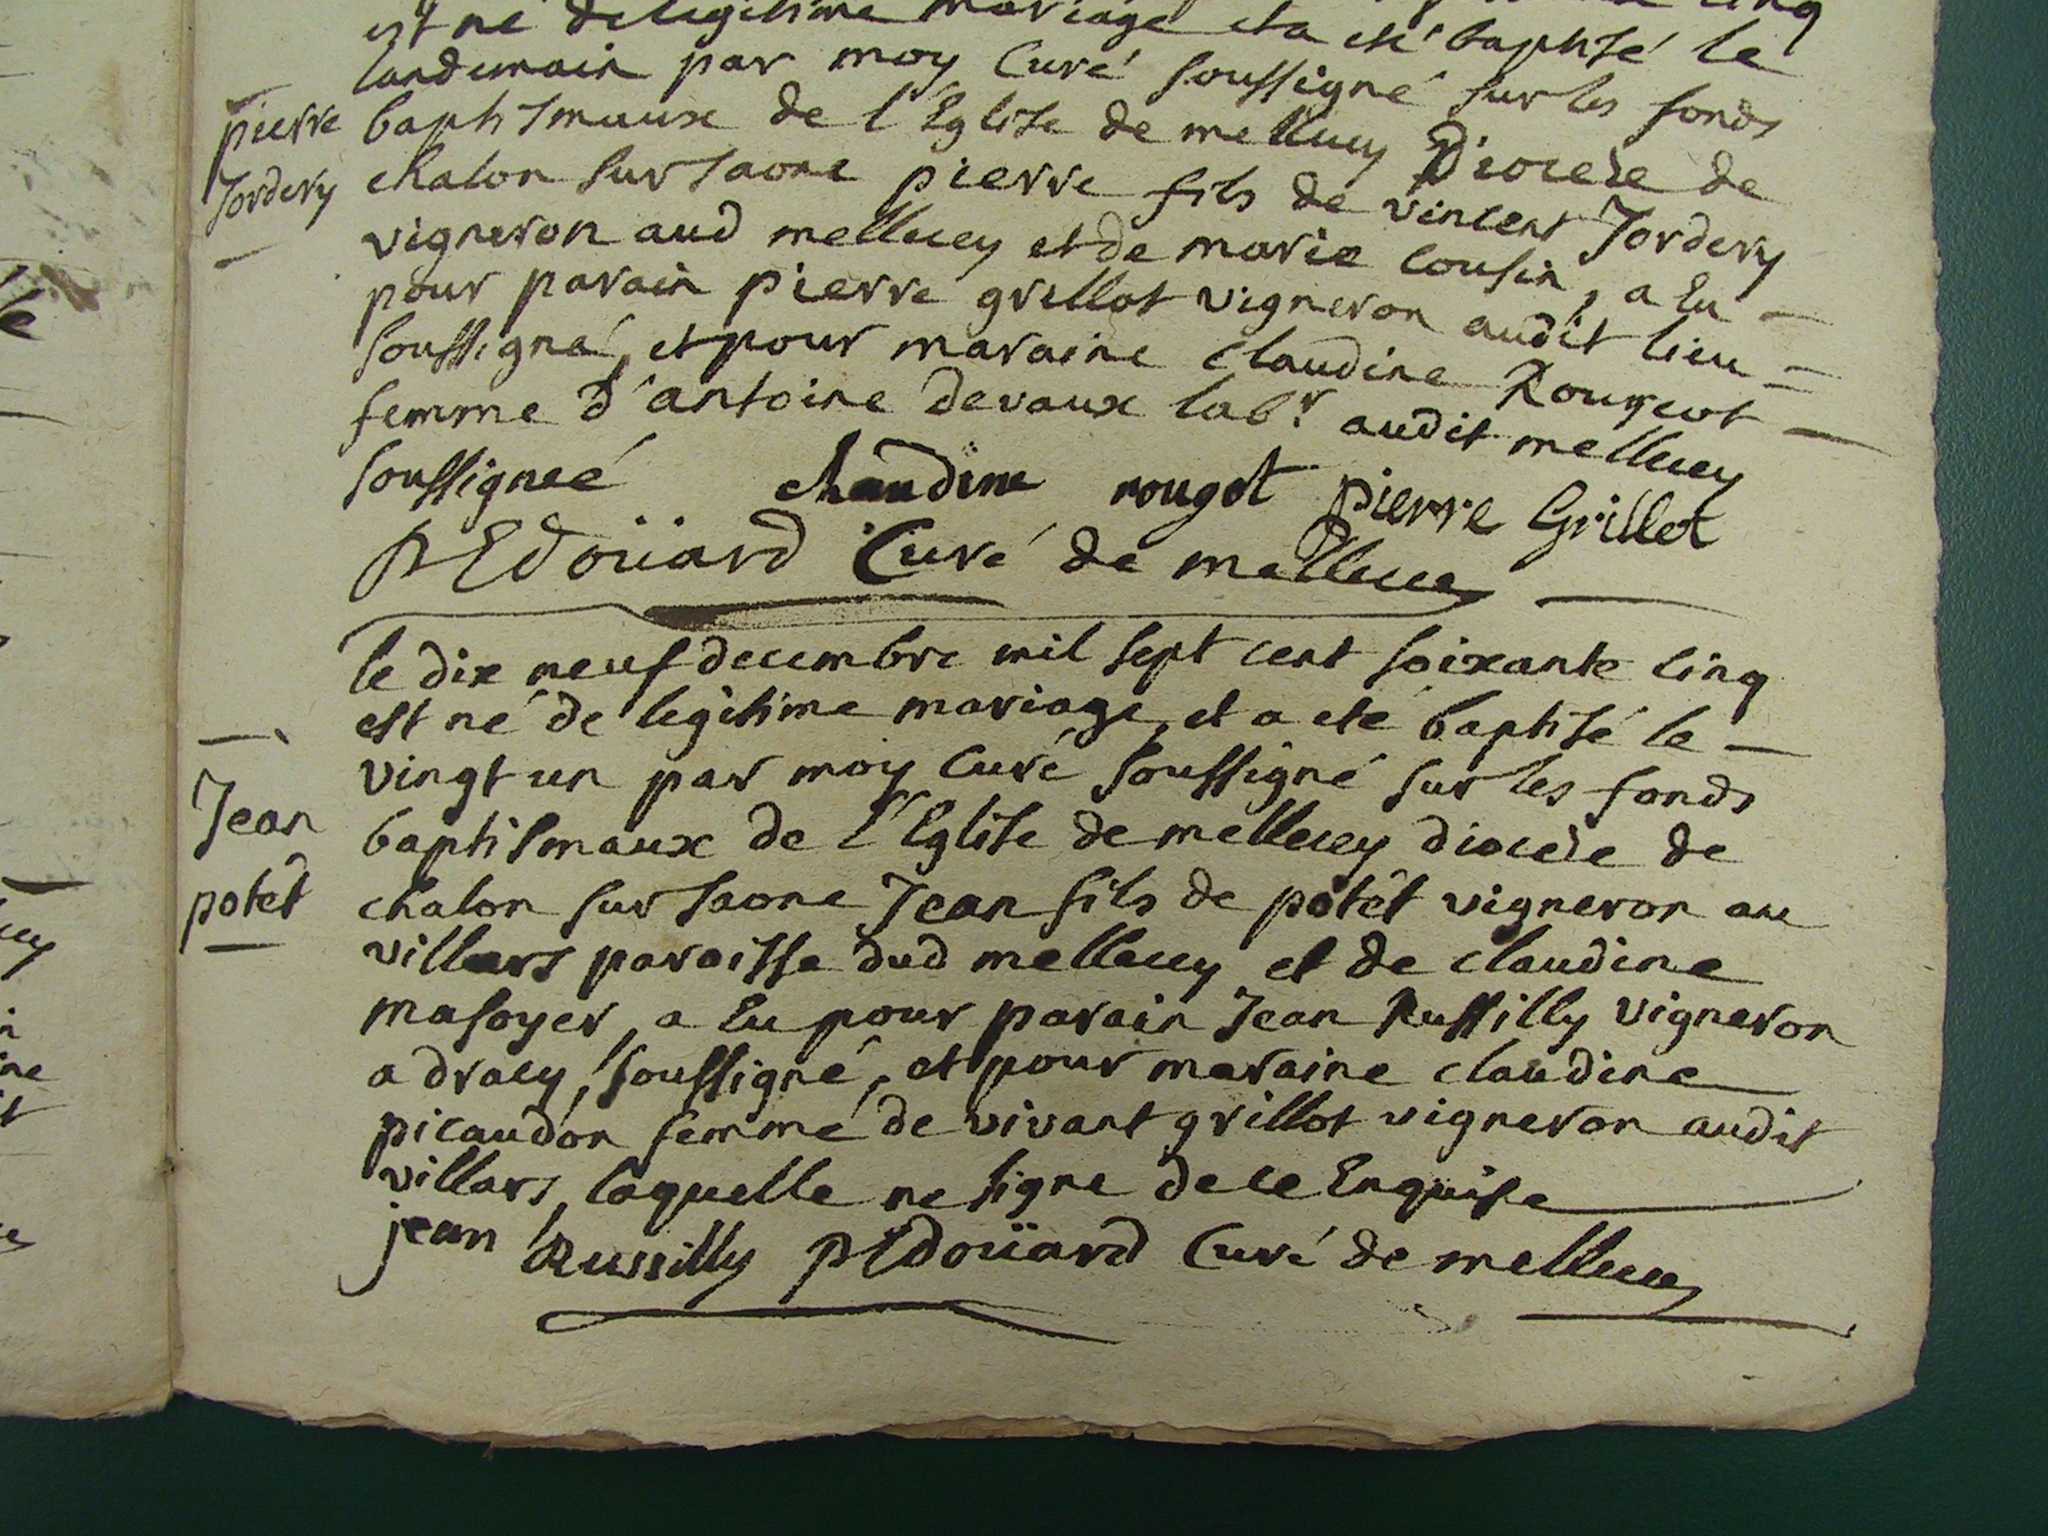 est né de legitime mariage et a eté baptisé le
landemain par moy Curé soussigné sur les fonds
pierre
baptismaux de l'Eglise de mellecey Diocese de
Jordery
chalon sur saone pierre fils de vincent Jordery
vigneron aud mellecey et de marie cousin, a Eu
pour parain pierre grillot vigneron audit lieu
soussigné, et pour maraine Claudine Rougeot
femme d'antoine devaux labr. audit mellecey
soussigneé claudine rougot pierre Grillot
P Edoüard Curé de mellecey
le dix neuf decembre mil sept cent soixante cinq
est né de legitime mariage, et a eté baptisé le
vingt un par moy Curé soussigné sur les fonds
Jean
baptismaux de l'Eglise de mellecey diocese de
potet
chalon sur saone Jean fils de potet vigneron au
villars paroisse dud mellecey et de claudine
masoyer, a Eu pour parain Jean Russilly vigneron
a dracy, soussigné, et pour maraine claudine
picaudon femme de vivant grillot vigneron audit
villars, laquelle ne signe de ce Enquise
jean Russilly P Edoüard Curé de mellecey